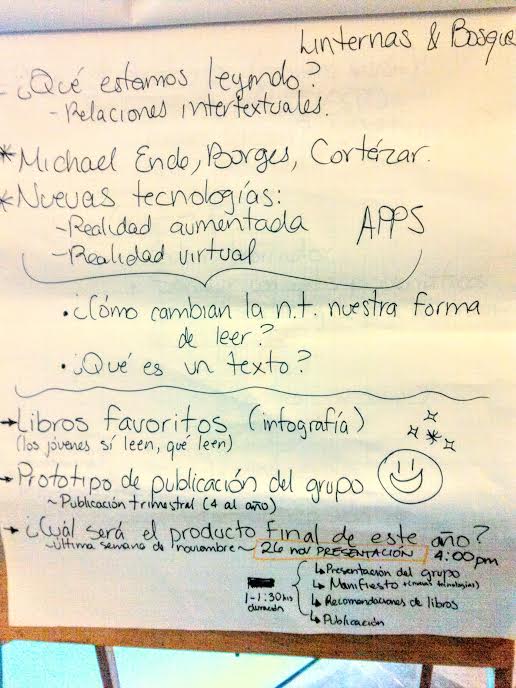 Linternas & Bosque
- ¿Qué estamos leyendo?
- Relaciones intertextuales.
* Michael Ende, Borges, Cortázar.
* Nuevas tecnologías:
~Realidad aumentada
~Realidad virtual
APPS
• ¿Cómo cambian la n.t. nuestra forma
de leer?
• ¿Qué es un texto?
→ Libros favoritos (infografía)
(los jóvenes sí leen, qué leen)
→ Prototipo de publicación del grupo
~ Publicación trimestral (4 al año)
→ ¿Cuál será el producto final de este año?
~última semana de noviembre~ 26 nov PRESENTACIÓN 4:00pm
↳ Presentación del grupo
↳ Manifiesto + (nuevas tecnologías)
↳ Recomendaciones de libros
↳ Publicación
1-1:30 hrs
duración